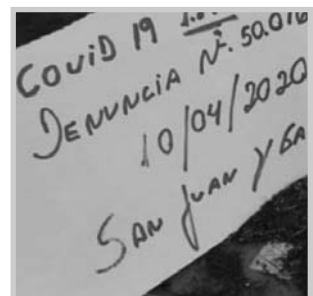 COVID 19
DENUNCIA Nº. 50.016
10/04/2020
SAN JUAN Y GA